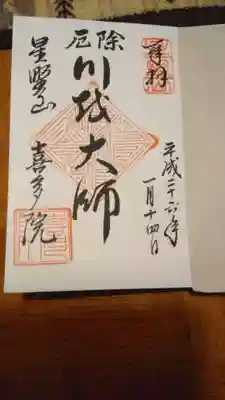 奉拝
平成二十六年
一月十四日
厄除
川越大師
星埜山
喜多院